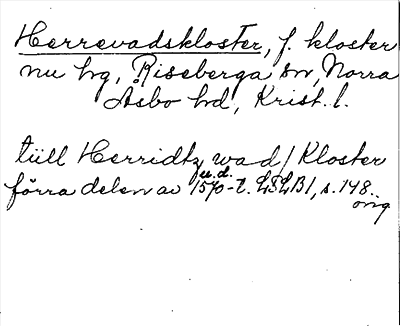 Herrevadskloster, f. kloster
nu hg, Riseberga sn, Norra
Åsbo hd, Krist. l.
tüll Herridtz wad / Kloster
u.d.
förra delen av 1570-t. s. 148.
orig